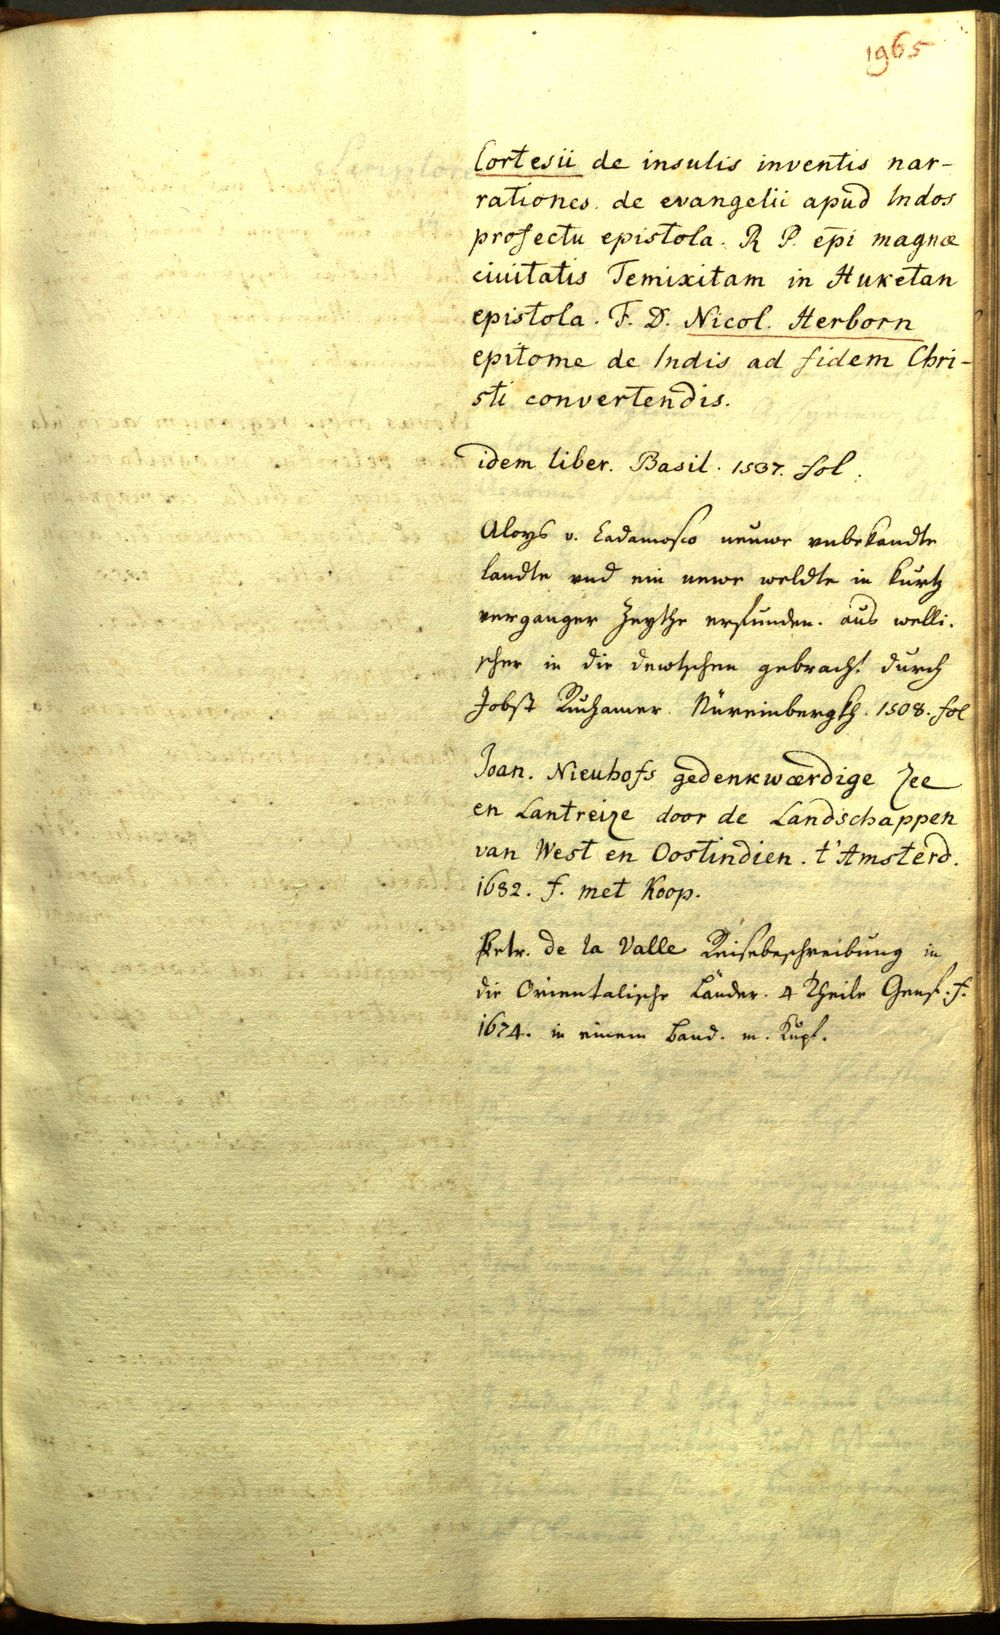 1965
Cortesii de insulis inventis nar-
rationes. de evangelii apud Indos
profectu epistola. R P. epi magnæ
civitatis Temixitam in Huketan
epistola. F. D. Nicol. Herborn
epitome de Indis ad fidem Chri-
sti convertendis.
idem liber. Basil. 1537. fol.
Aloys v. Cadamosco neuwe vnbekandte
landte vnd ein newe weldte in kurtz
verganger Zeythe erfunden. aus welli-
scher in die dewtschen gebracht durch
Jobst Ruchamer. Nüreinbergkh. 1508. fol
Joan. Nieuhofs gedenkwærdige Zee
en Lantreize door de Landschappen
van West en Oostindien. t'Amsterd.
1682. f. met Koop.
Petr. de la Valle Reisebeschreibung in
die Orientalische Länder. 4 Theile Genf. f.
1674. in einem Band. m. Kupf.